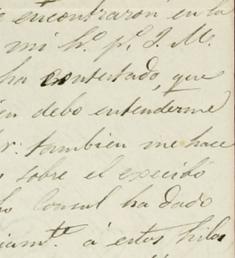 encontraron en la
mi h.º p.r J. M.
ha contestado que
en debo entenderme
r. tambien me hace
sobre el
ho Consul ha dado
iam.te á estos